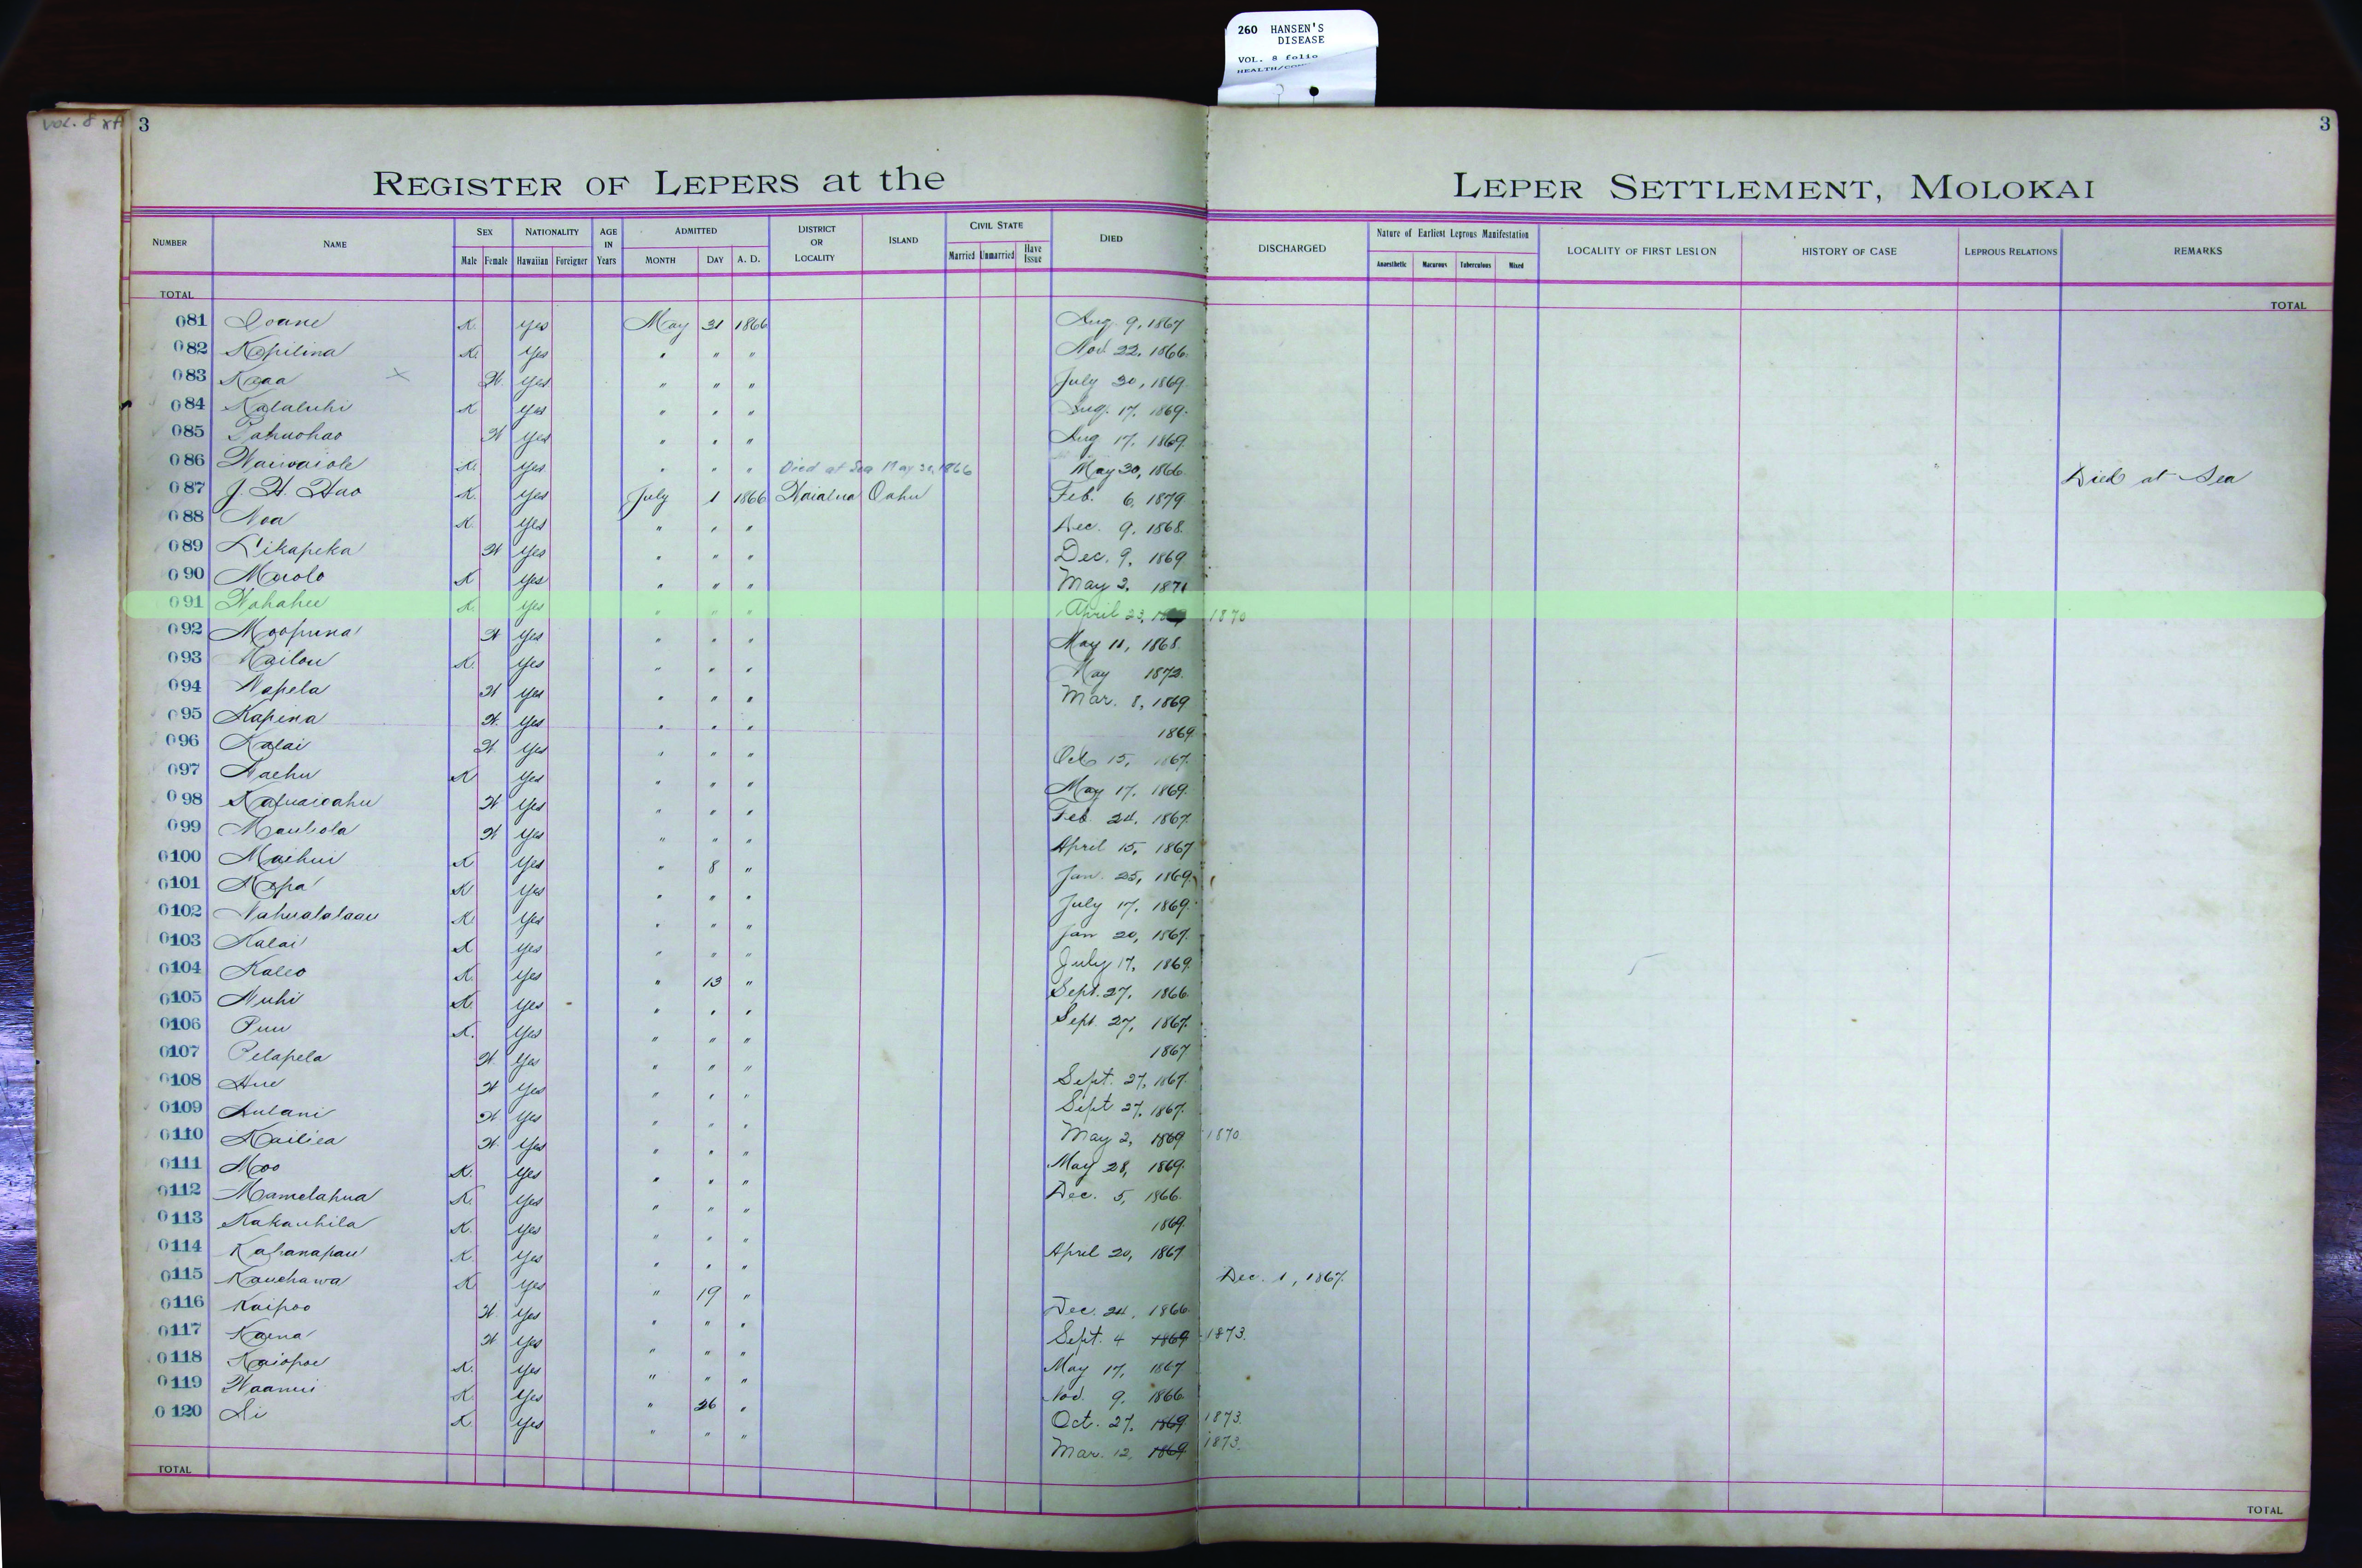 260 HANSEN'S
DISEASE
VOL. 8 folio
VOL. 8
3
3
REGISTER OF LEPERS at the LEPER SETTLEMENT, MOLOKAI
NUMBER NAME SEX NATIONALITY AGE IN Years ADMITTED DISTRICT OR LOCALITY ISLAND CIVIL STATE DIED DISCHARGED Nature of Earliest Leprous Manifestation LOCALITY OF FIRST LESION HISTORY OF CASE LEPROUS RELATIONS REMARKS
Male Female Hawaiian Foreigner MONTH DAY A. D. Married Unmarried Have Issue Anaesthetic Macurous Tuberculous Mixed
TOTAL TOTAL
081 Ioane K. yes May 31 1866 Aug. 9, 1867
082 Kapilina K. yes " " " Nov. 22, 1866.
083 Kaaa x W. yes " " " July 30, 1869.
084 Kalaluhi K yes " " " Aug. 17, 1869.
085 Pahuohao W yes " " " Aug 17, 1869.
086 Waiwaiole K. yes " " " Died at Sea May 30, 1866 May 30, 1866. Died at Sea
087 J. H. Hao K. yes July 1 1866 Waialua Oahu Feb. 6, 1879
088 Noa K. yes " " " Dec. 9, 1868.
089 Likapeka W yes " " " Dec. 9, 1869
090 Maolo K yes " " " May 2, 1871
091 Nahahu K. yes " " " April 23, 1870
092 Moopuna W yes " " " May 11, 1868.
093 Kailou K. yes " " " May 1872.
094 Napela W yes " " " Mar. 8, 1869
095 Kapena W. yes " " " 1869.
096 Kalai W. yes " " " Oct 15, 1867.
097 Naehu K yes " " " May 17, 1869.
098 W yes " " " Feb. 24, 1867.
099 Mauliola W yes " " " April 15, 1867
0100 Maihui K yes " 8 " Jan. 25, 1869
0101 Napa K yes " " " July 17, 1869.
0102 Nahualalaau K. yes " " " Jan 20, 1867.
0103 Kalai K yes " " " July 17, 1869.
0104 Kaleo K. yes " 13 " Sept. 27, 1866.
0105 Nuhi K. yes " " " Sept. 27, 1867.
0106 Puu K. yes " " " 1867
0107 Pelapela W yes " " " Sept. 27, 1867.
0108 Hue W yes " " " Sept 27, 1867.
0109 Aulani W. yes " " " May 2, 1869 1870
0110 Kailiea W. yes " " " May 28, 1869.
0111 Moo K. yes " " " Dec. 5, 1866.
0112 Mamelahua K. yes " " " 1869.
0113 Kakauhila K. yes " " " April 20, 1867
0114 Kahanapau K. yes " " " Dec. 1, 1867.
0115 Kauehawa K. yes " 19 " Dec. 24, 1866.
0116 Kaipoo W. yes " " " Sept. 4 1869 1873.
0117 Kaena W yes " " " May 17, 1867
0118 Kaiopoe K. yes " " " Nov. 9, 1866.
0119 Naanui K. yes " 26 " Oct. 27, 1869 1873.
0120 K. yes " " " Mar. 12, 1869 1873.
TOTAL TOTAL